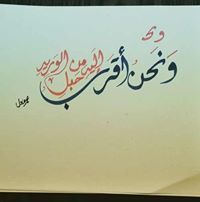 وَنَحْنُ أَقْرَبُ إِلَيْهِ مِنْ حَبْلِ الْوَرِيدِ